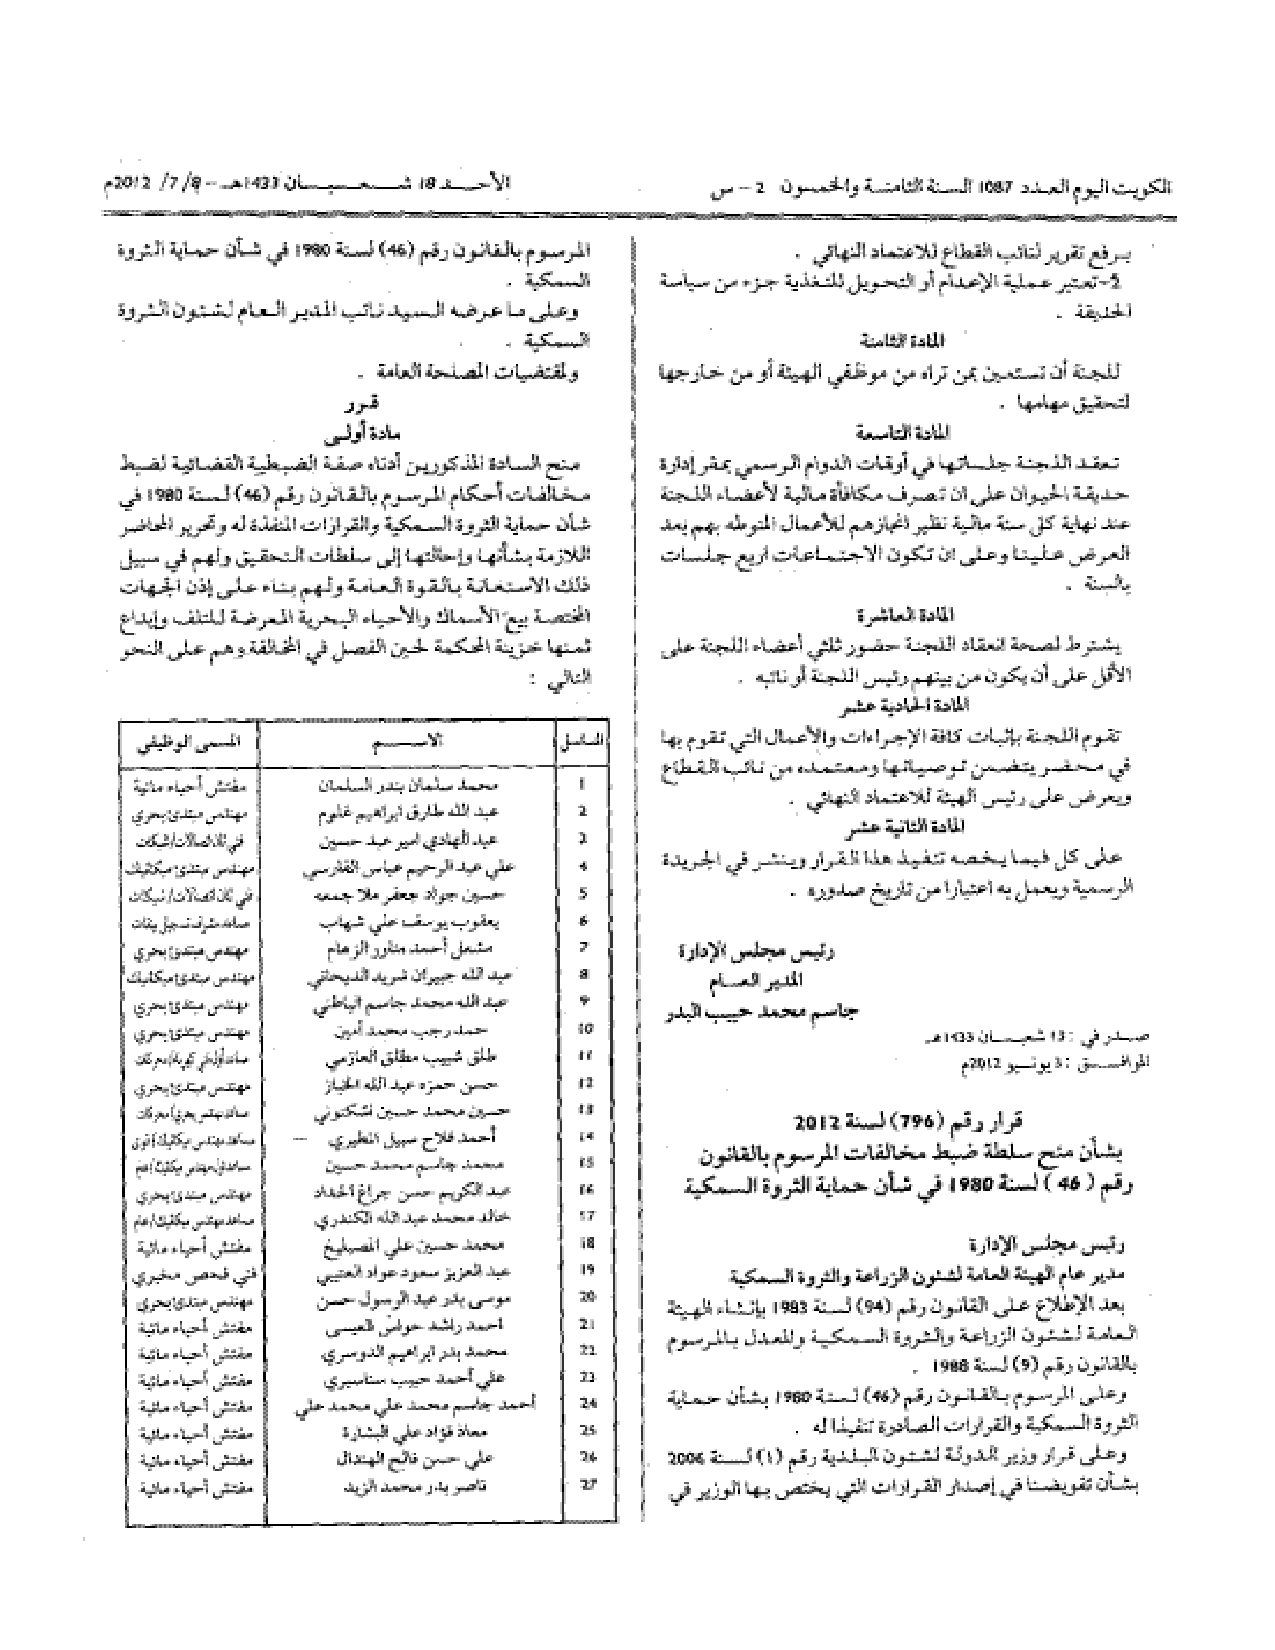 الكويت اليوم العدد 1087 السنة الثامنة والخمسون 2 – س
الأحد 18 شعبان 1433هـ – 8/ 7/ 2012م
برفع تقرير لنائب القطاع للاعتماد النهائي .
2-تعتبر عملية الإعدام أو التحويل للتغذية جزء من سياسة
الحديقة .
المادة الثامنة
للجنة أن تستعين بمن تراه من موظفي الهيئة أو من خارجها
لتحقيق مهامها .
المادة التاسعة
تعقد اللجنة جلساتها في أوقات الدوام الرسمي بمقر إدارة
حديقة الحيوان على ان تصرف مكافأة مالية لأعضاء اللجنة
عند نهاية كل سنة مالية نظير انجازهم للأعمال المنوطه بهم بعد
العرض علينا وعلى ان تكون الاجتماعات اربع جلسات
بالسنة .
المادة العاشرة
يشترط لصحة انعقاد اللجنة حضور ثلثي أعضاء اللجنة على
الأقل على أن يكون من بينهم رئيس اللجنة أو نائبه .
المادة الحادية عشر
تقوم اللجنة بإثبات كافة الإجراءات والأعمال التي تقوم بها
في محضر يتضمن توصياتها ومعتمده من نائب القطاع
ويعرض على رئيس الهيئة للاعتماد النهائي .
المادة الثانية عشر
على كل فيما يخصه تنفيذ هذا القرار وينشر في الجريدة
الرسمية ويعمل به اعتبارا من تاريخ صدوره .
رئيس مجلس الإدارة
المدير العام
جاسم محمد حبيب البدر
صدر في : 13 شعبان 1433هـ
الموافق : 3 يونيو 2012م
قرار رقم (796) لسنة 2012
بشأن منح سلطة ضبط مخالفات المرسوم بالقانون
رقم ( 46 ) لسنة 1980 في شأن حماية الثروة السمكية
رئيس مجلس الإدارة
مدير عام الهيئة العامة لشئون الزراعة والثروة السمكية
بعد الإطلاع على القانون رقم (94) لسنة 1983 بإنشاء الهيئة
العامة لشئون الزراعة والثروة السمكية والمعدل بالمرسوم
بالقانون رقم (9) لسنة 1988 .
وعلى المرسوم بالقانون رقم (46) لسنة 1980 بشأن حماية
الثروة السمكية والقرارات الصادرة تنفيذا له .
وعلى قرار وزير الدولة لشئون البلدية رقم (1) لسنة 2006
بشأن تفويضنا في إصدار القرارات التي يختص بها الوزير في
المرسوم بالقانون رقم (46) لسنة 1980 في شأن حماية الثروة
السمكية .
وعلى ما عرضه السيد نائب المدير العام لشئون الثروة
السمكية .
ولمقتضيات المصلحة العامة .
قرر
مادة أولى
منح السادة المذكورين أدناه صفة الضبطية القضائية لضبط
مخالفات أحكام المرسوم بالقانون رقم (46) لسنة 1980 في
شأن حماية الثروة السمكية والقرارات المنفذة له وتحرير المحاضر
اللازمة بشأنها وإحالتها إلى سلطات التحقيق ولهم في سبيل
ذلك الاستعانة بالقوة العامة ولهم بناء على إذن الجهات
المختصة بيع الأسماك والأحياء البحرية المعرضة للتلف وإيداع
ثمنها خزينة المحكمة لحين الفصل في المخالفة وهم على النحو
التالي :
المسلسل الاسم المسمى الوظيفي
1 محمد سلمان بندر السلمان مفتش أحياء مائية
2 عبد الله طارق ابراهيم غلوم مهندس مبتدئ/بحري
3 عبد الهادي امير عيد حسين
4 علي عبد الرحيم عباس الفارسي مهندس مبتدئ/ميكانيك
5 حسين جواد جعفر ملا جمعه
6 يعقوب يوسف علي شهاب
7 مشعل أحمد مناور الزهام مهندس مبتدئ/بحري
8 عبد الله جبران شريد الديحاني مهندس مبتدئ/ميكانيك
9 عبد الله محمد جاسم الباطني مهندس مبتدئ/بحري
10 حمد رجب محمد أمين مهندس مبتدئ/بحري
11 طلق شبيب مطلق العازمي
12 حسن حمزه عبد الله الخباز مهندس مبتدئ/بحري
13 حسين محمد حسين اشكنوني
14 أحمد فلاح سبيل المطيري
15 محمد جاسم محمد حسين
16 عبد الكريم حسن جراغ الحداد مهندس مبتدئ/بحري
17 خالد محمد عبد الله الكندري مساعد مهندس ميكانيك/عام
18 محمد حسين علي المصيليخ مفتش أحياء مائية
19 عبد العزيز سعود عواد العتيبي فني فحص مخبري
20 موسى بدر عبد الرسول حسن مهندس مبتدئ/بحري
21 احمد راشد حواس العيسى مفتش أحياء مائية
22 محمد بدر ابراهيم الدوسري مفتش أحياء مائية
23 علي أحمد حبيب سناسيري مفتش أحياء مائية
24 أحمد جاسم محمد علي محمد علي مفتش أحياء مائية
25 معاذ فؤاد علي البشارة مفتش أحياء مائية
26 علي حسن فالح الهندال مفتش أحياء مائية
27 ناصر بدر محمد الزيد مفتش أحياء مائية